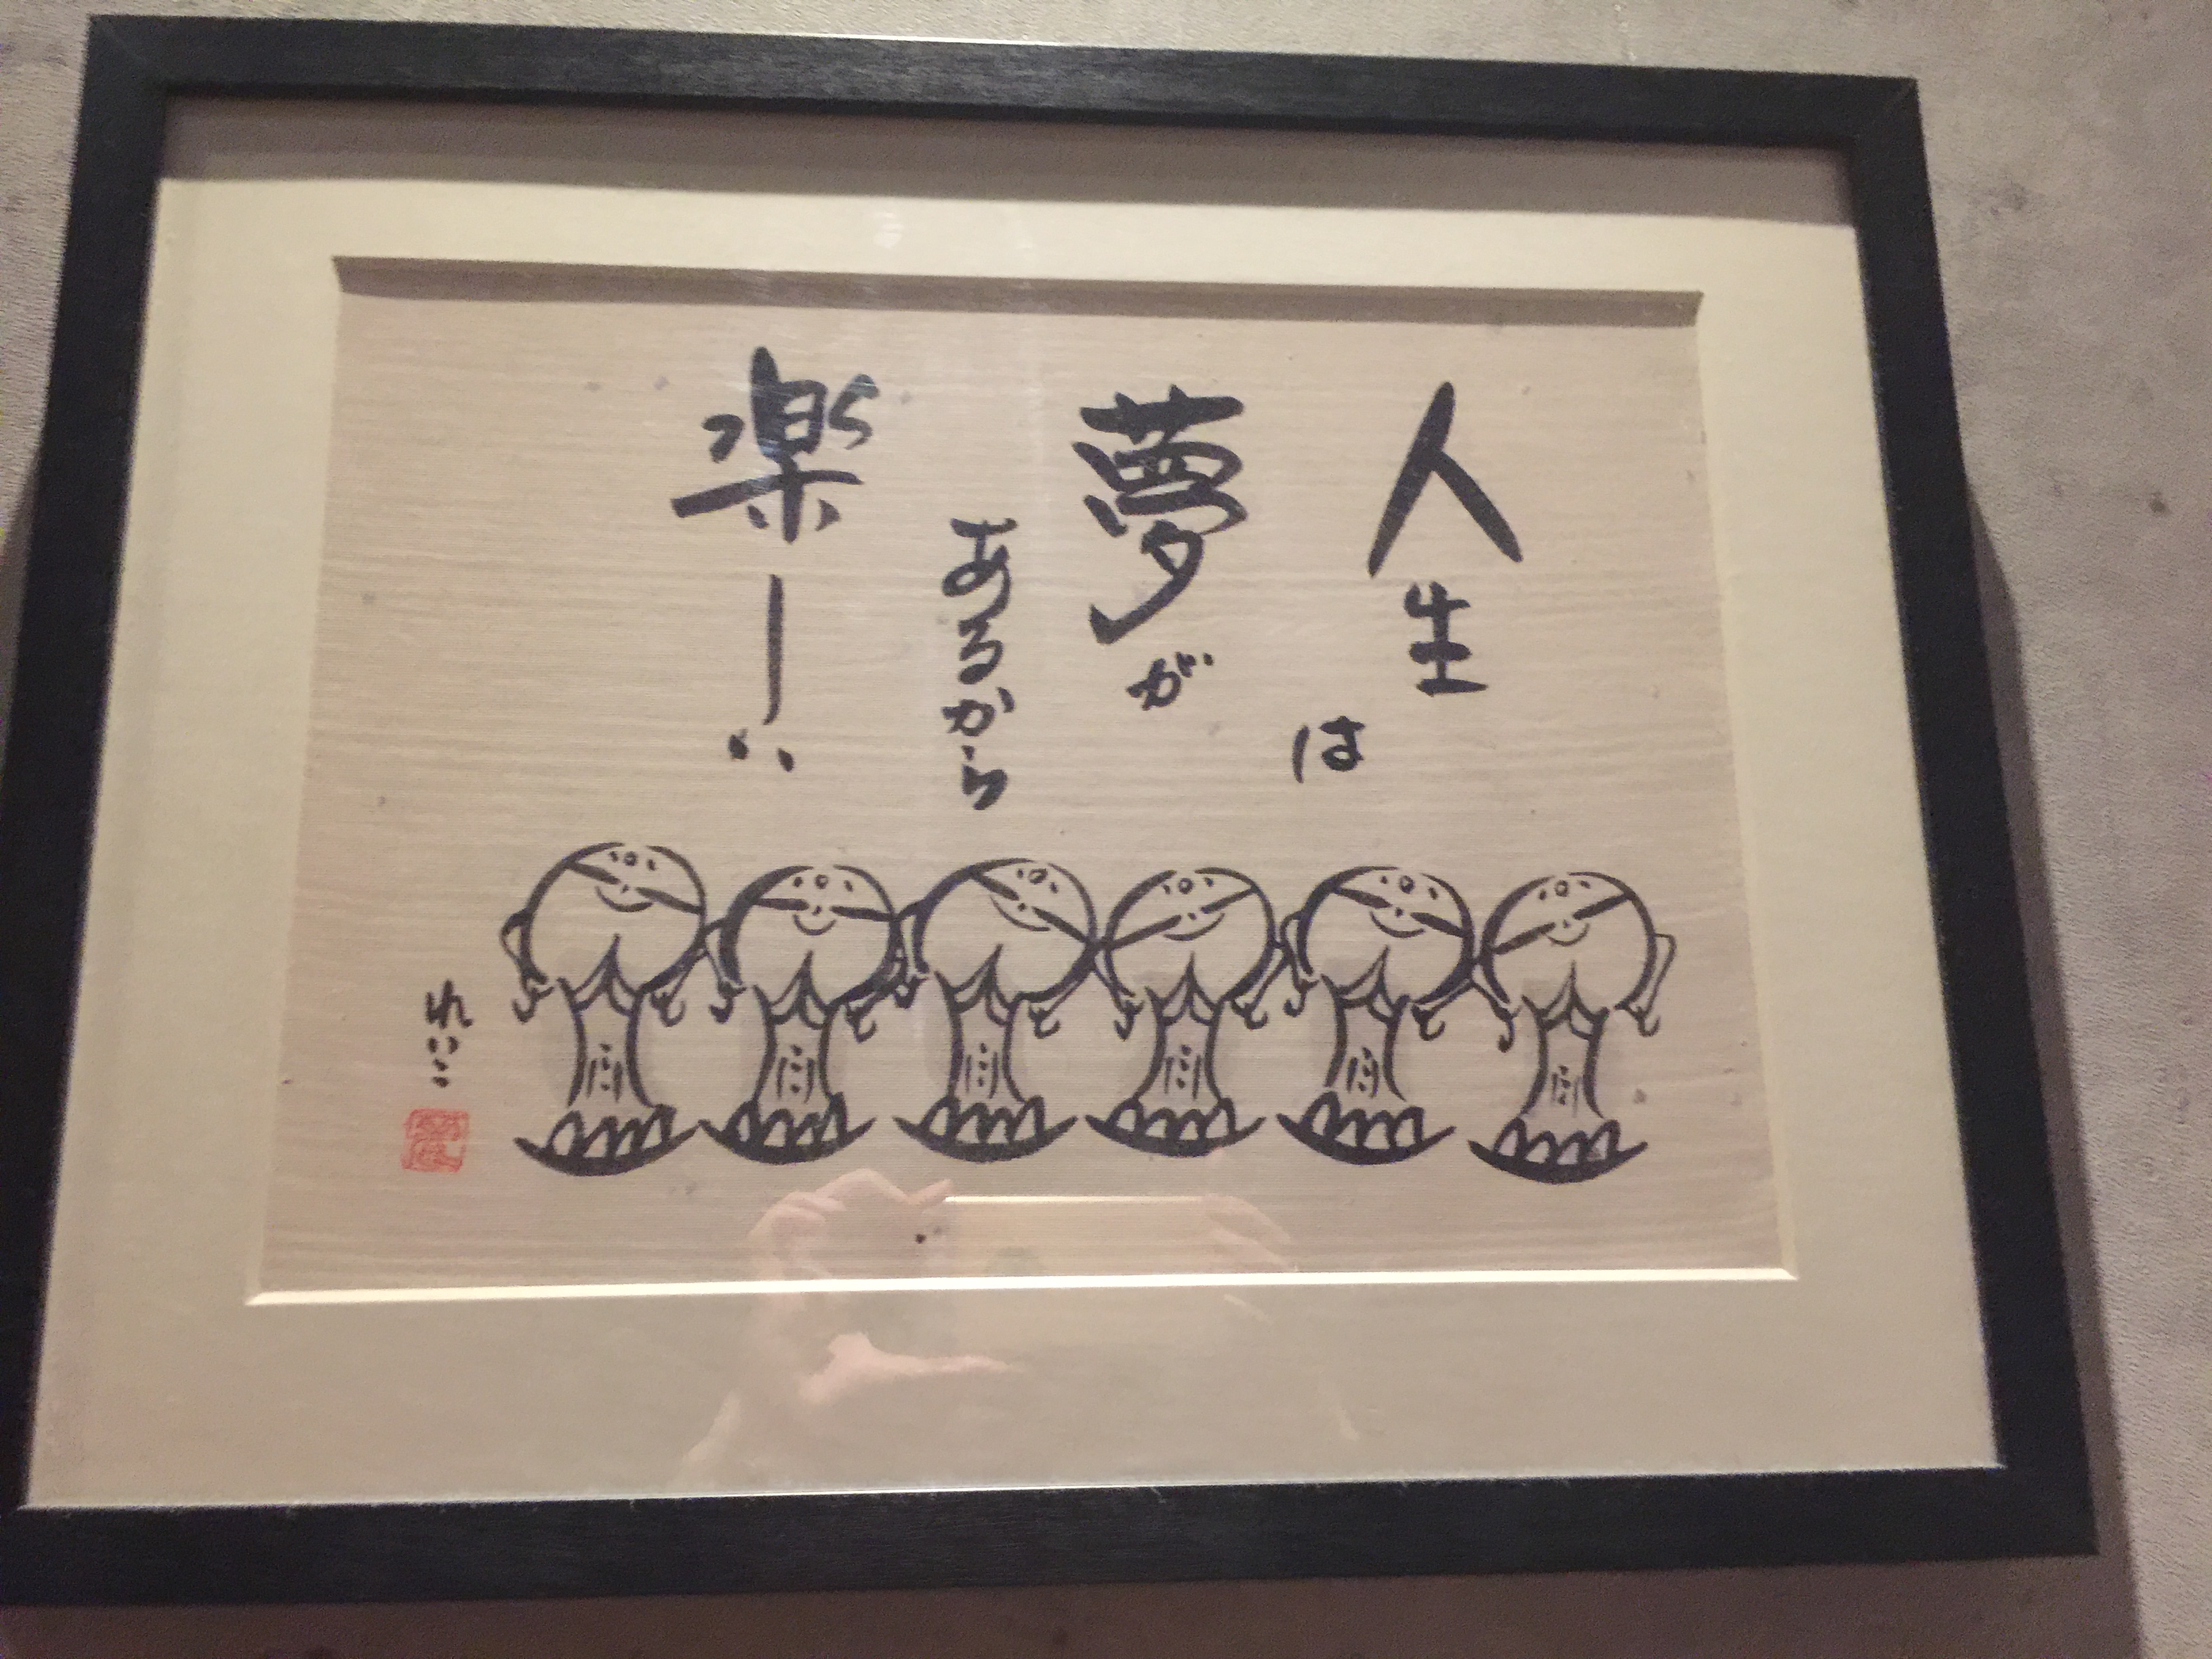 人生
は
夢が
あるから
楽しい
れいこ